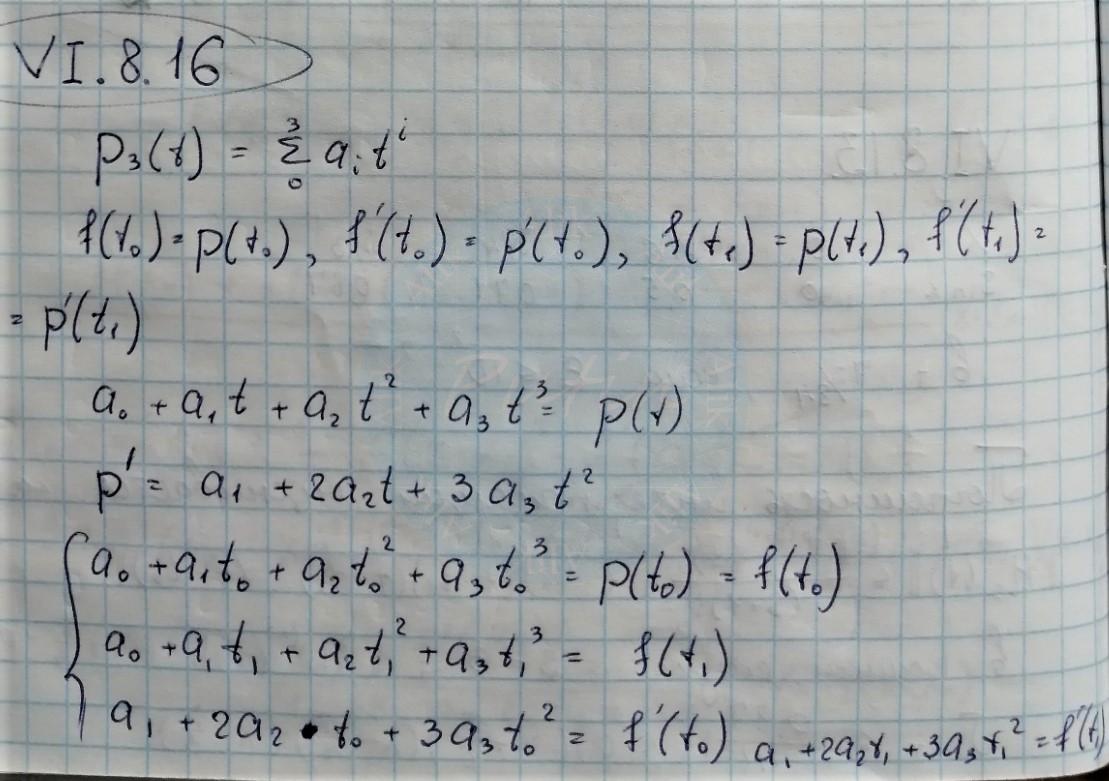 VI.8.16
p₃(t) = Σ₀³ aᵢ tⁱ
f(t₀) = p(t₀), f'(t₀) = p'(t₀), f(t₁) = p(t₁), f'(t₁) =
= p'(t₁)
a₀ + a₁t + a₂t² + a₃t³ = p(t)
p' = a₁ + 2a₂t + 3a₃t²
a₀ + a₁t₀ + a₂t₀² + a₃t₀³ = p(t₀) = f(t₀)
a₀ + a₁t₁ + a₂t₁² + a₃t₁³ = f(t₁)
a₁ + 2a₂ • t₀ + 3a₃t₀² = f'(t₀) a₁ + 2a₂t₁ + 3a₃t₁² = f'(t₁)